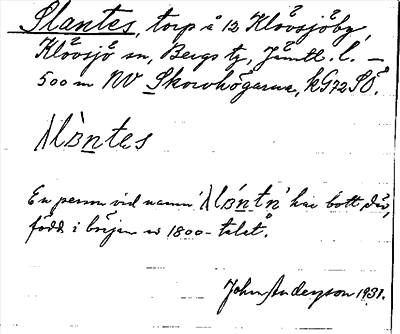 Slantes, torp å 12 Klövsjöby,
Klövsjö sn, Bergs tg, Jämtl. l. –
500 m NV Skorvhögarna, kG72SÖ.
En person vid namn har bott där,
född i början av 1800-talet.
John Andersson 1931.